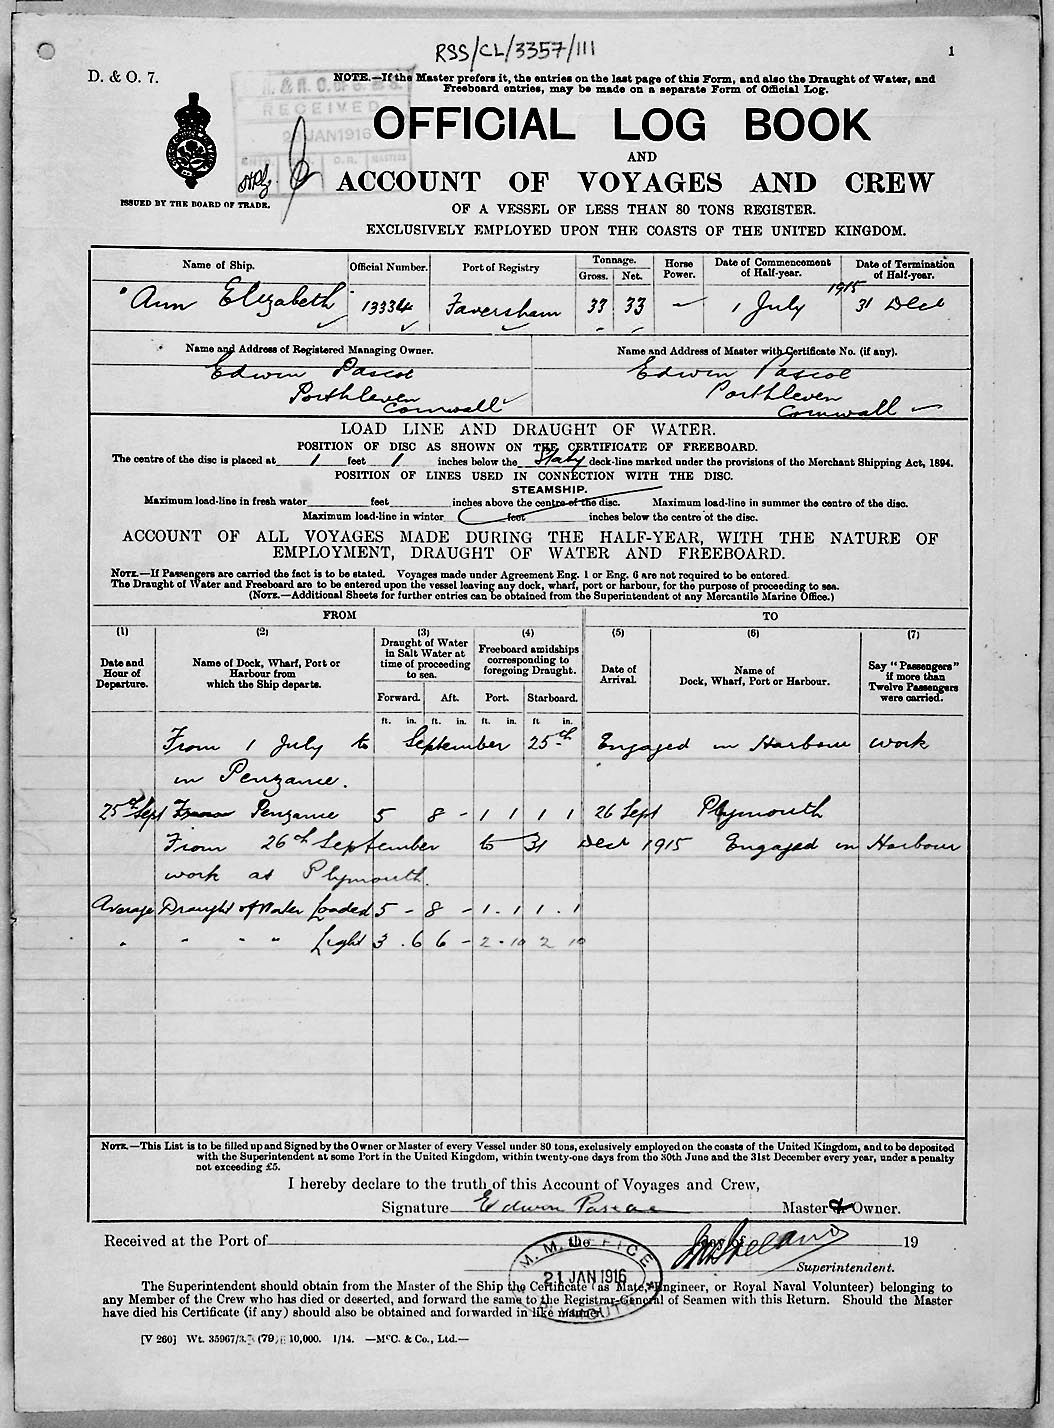 RSS/CL/3357/111
1
D. & O. 7.
NOTE.—If the Master prefers it, the entries on the last page of this Form, and also the Draught of Water, and
Freeboard entries, may be made on a separate Form of Official Log.
RECEIVED
JAN 1916
OFFICIAL LOG BOOK
AND
ACCOUNT OF VOYAGES AND CREW
ISSUED BY THE BOARD OF TRADE.
OF A VESSEL OF LESS THAN 80 TONS REGISTER.
EXCLUSIVELY EMPLOYED UPON THE COASTS OF THE UNITED KINGDOM.
Name of Ship. Official Number. Port of Registry Tonnage. Gross. Net. Horse Power. Date of Commencement of Half-year. Date of Termination of Half-year.
"Ann Elizabeth" 13334 Faversham 33 33 — 1 July 1915 31 Dec
Name and Address of Registered Managing Owner. Name and Address of Master with Certificate No. (if any).
Edwin Pascoe Edwin Pascoe
Porthleven Porthleven
Cornwall Cornwall
LOAD LINE AND DRAUGHT OF WATER.
POSITION OF DISC AS SHOWN ON THE CERTIFICATE OF FREEBOARD.
The centre of the disc is placed at 1 feet 1 inches below the deck-line marked under the provisions of the Merchant Shipping Act, 1894.
POSITION OF LINES USED IN CONNECTION WITH THE DISC.
STEAMSHIP.
Maximum load-line in fresh water feet inches above the centre of the disc. Maximum load-line in summer the centre of the disc.
Maximum load-line in winter feet inches below the centre of the disc.
ACCOUNT OF ALL VOYAGES MADE DURING THE HALF-YEAR, WITH THE NATURE OF
EMPLOYMENT, DRAUGHT OF WATER AND FREEBOARD.
NOTE.—If Passengers are carried the fact is to be stated. Voyages made under Agreement Eng. 1 or Eng. 6 are not required to be entered.
The Draught of Water and Freeboard are to be entered upon the vessel leaving any dock, wharf, port or harbour, for the purpose of proceeding to sea.
(NOTE.—Additional Sheets for further entries can be obtained from the Superintendent of any Mercantile Marine Office.)
FROM TO
(1) (2) (3) (4) (5) (6) (7)
Date and Hour of Departure.
Name of Dock, Wharf, Port or Harbour from which the Ship departs.
Draught of Water in Salt Water at time of proceeding to sea.
Freeboard amidships corresponding to foregoing Draught.
Date of Arrival.
Name of Dock, Wharf, Port or Harbour.
Say "Passengers" if more than Twelve Passengers were carried.
Forward. Aft. Port. Starboard.
ft. in. ft. in. ft. in. ft in.
From 1 July to September 25th Engaged in Harbour work
in Penzance.
25th Sept From Penzance 5 8 - 1 1 1 1 26 Sept Plymouth
From 26th September to 31 Dect 1915 Engaged in Harbour
work at Plymouth.
Average Draught of Water Loaded 5 - 8 - 1 . 1 1 . 1
" " " " Light 3 . 6 6 - 2 . 10 2 10
NOTE.—This List is to be filled up and Signed by the Owner or Master of every Vessel under 80 tons, exclusively employed on the coasts of the United Kingdom, and to be deposited
with the Superintendent at some Port in the United Kingdom, within twenty-one days from the 30th June and the 31st December every year, under a penalty
not exceeding £5.
I hereby declare to the truth of this Account of Voyages and Crew,
Signature Edwin Pascoe Master & Owner.
Received at the Port of 19
M. M. OFFICE
21 JAN 1916
Superintendent.
The Superintendent should obtain from the Master of the Ship the Certificate (as Mate, Engineer, or Royal Naval Volunteer) belonging to
any Member of the Crew who has died or deserted, and forward the same to the Registrar-General of Seamen with this Return. Should the Master
have died his Certificate (if any) should also be obtained and forwarded in like manner.
[V 260] Wt. 35967/3. (79) 10,000. 1/14. —McC. & Co., Ltd.—